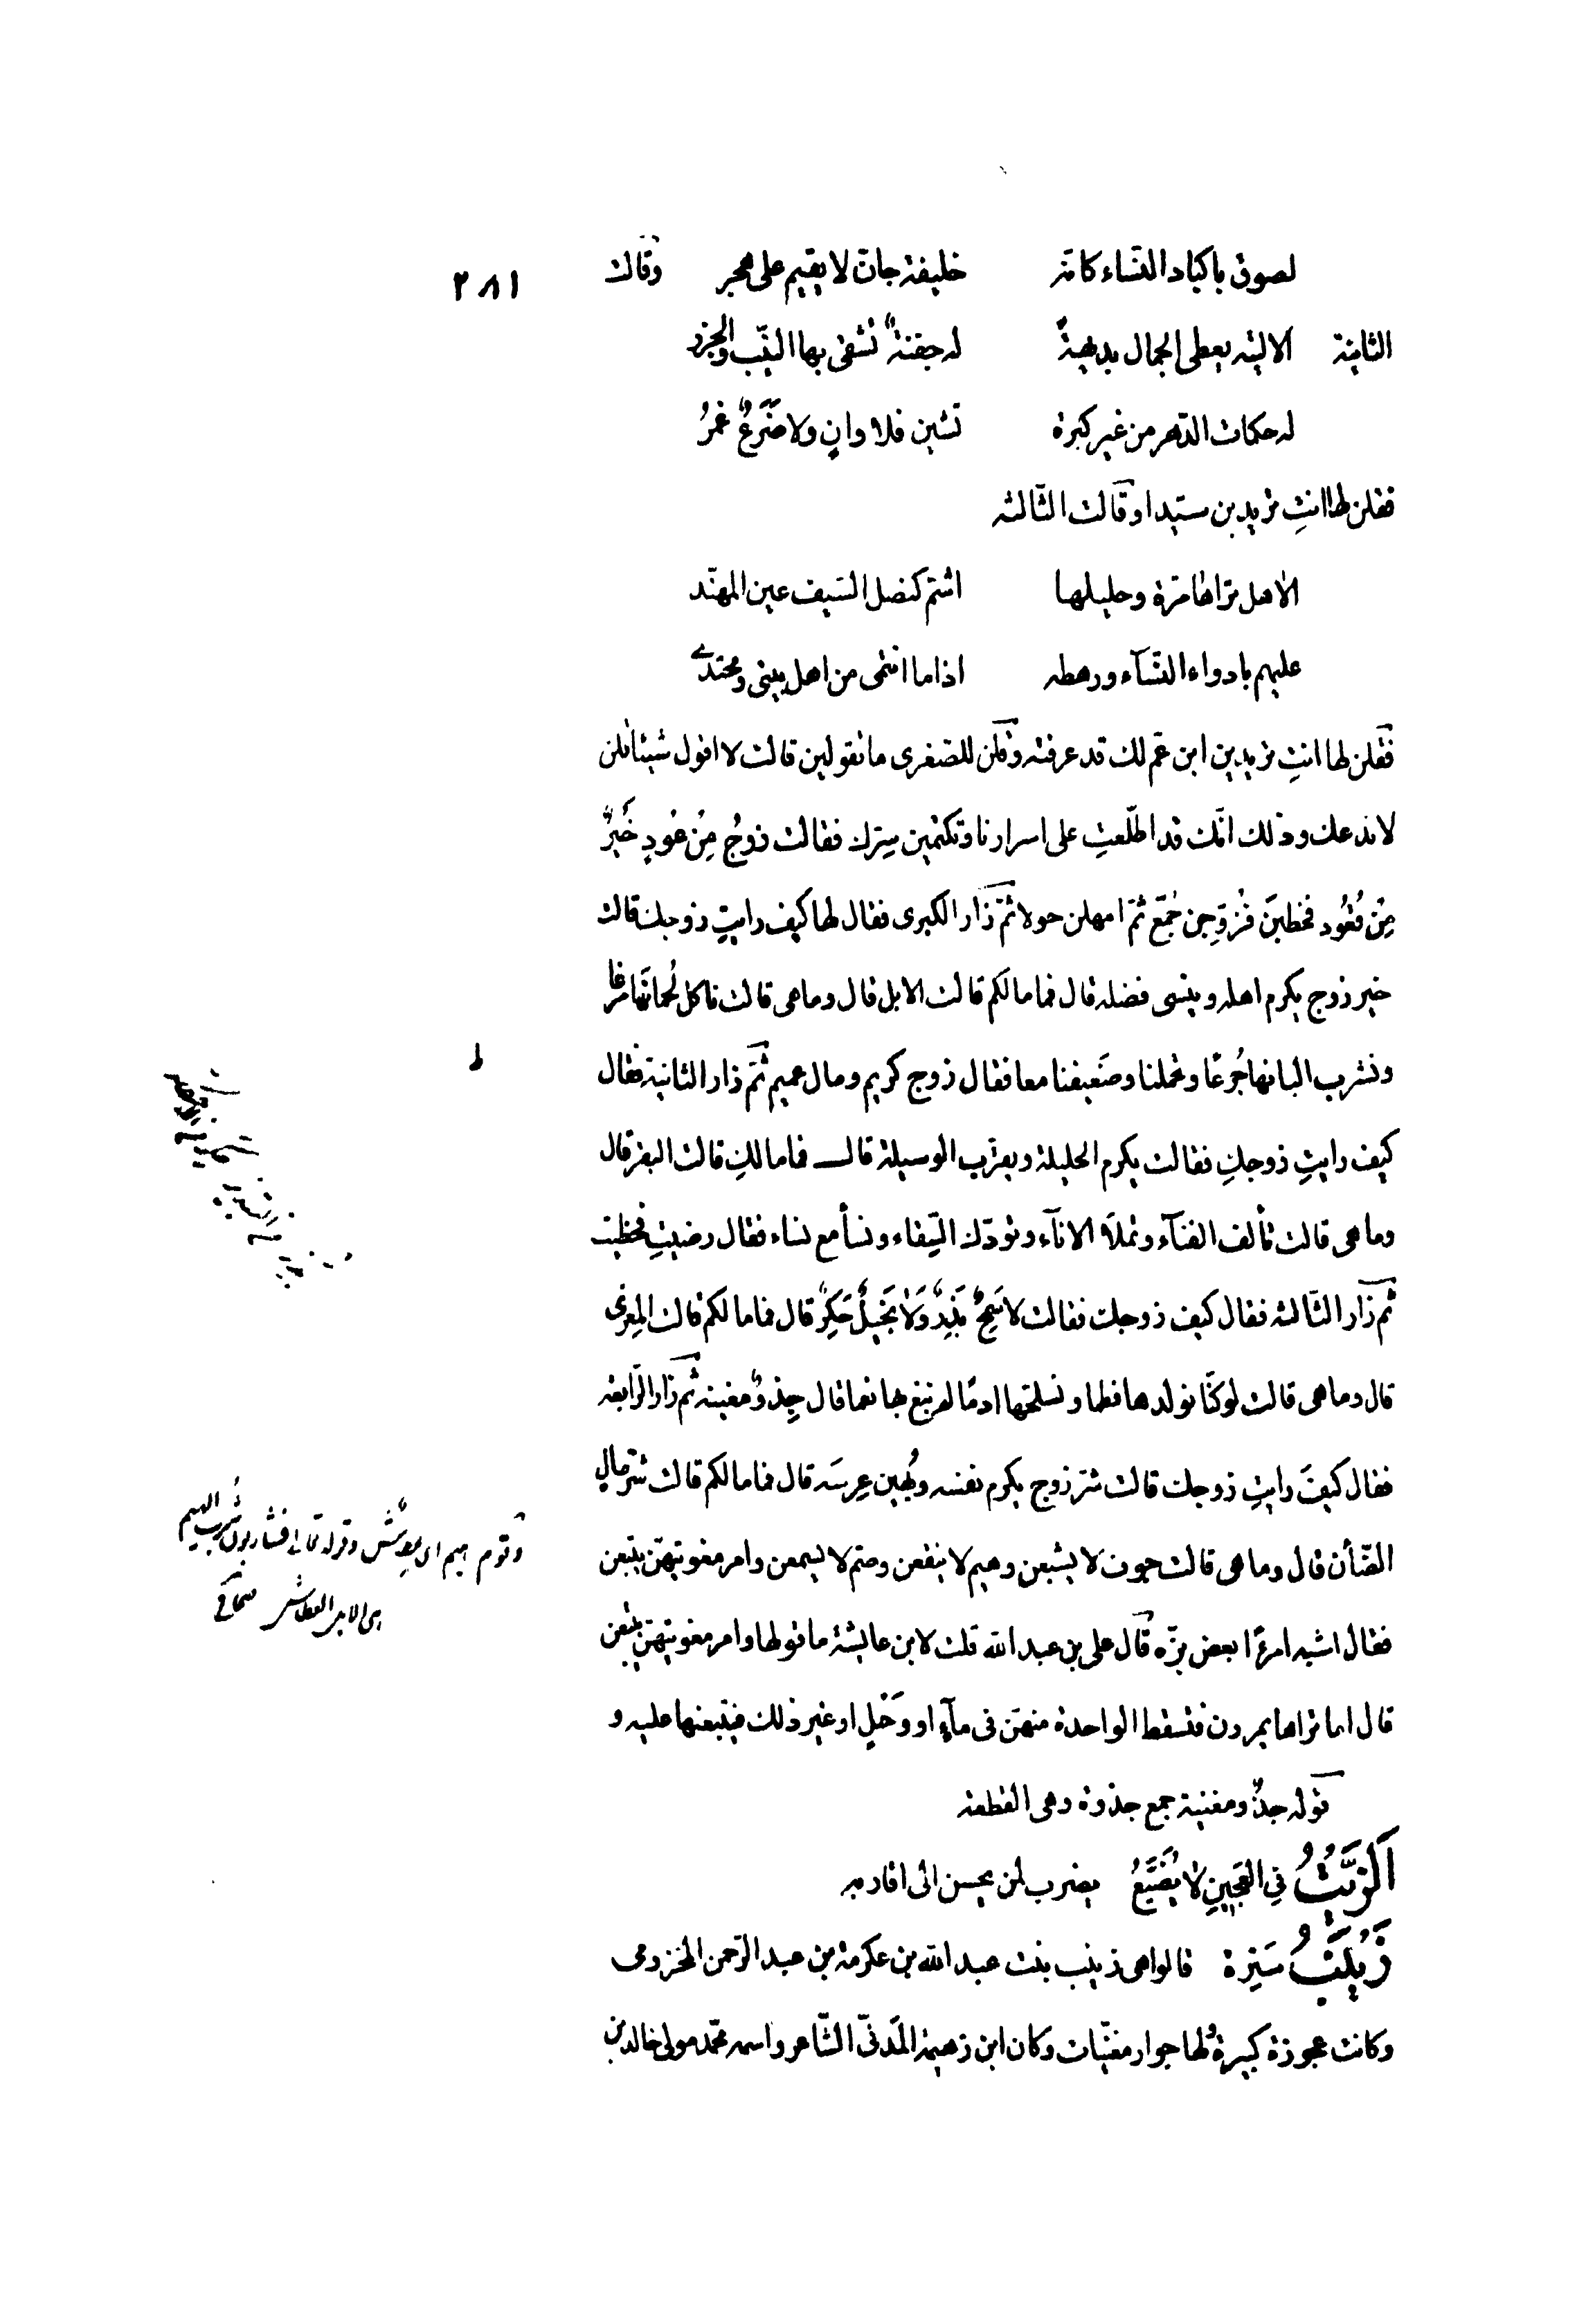 لصوق باكباد النساء كانّه خليفة جانّ لا يقيم على هجر وقالت
٢٨١
الثانية الا ليته يعطى الجمال بديهةً له جفنةٌ تشقى بها النيّب والجزر
له حكمات الدّهر من غير كبرة تشين فلا وانٍ ولا ضَرَعٌ غمرُ
فقلن لها انتِ تريدين سيّدا وقالت الثّالثه
الا هل تراها مرّة وحليلها اشمّ كنصل السّيف عين المهنّد
عليهم بادواء النّسآء ورهطه اذا ما انتمى من اهل بيتى ومحتدى
فقلن لها انتِ تريدين ابن عمّ لك قد عرفته وقلن للصّغرى ما تقولين قالت لا اقول شيئا قلن
لا ندعك وذلك انّك قد اطّلعتِ على اسرارنا وتكتمين سِرّك فقالت زوجٌ مِنْ عُودٍ خَيرٌ
مِنْ قُعُود فخطبنَ فزُوِّجن جُمَع ثمّ امهلن حولا ثمّ زار الكبرى فقال لها كيف رايتِ زوجك قالت
خير زوج يكرم اهله وينسى فضله قال فما مالكم قالت الابل قال وما هى قالت ناكل لُحمانَها مزعا
ونشرب البانها جُرعًا وتحملنا وضَعيفنا معا فقال زوج كريم ومال عميم ثمّ زار الثانية فقال
كيف رايتِ زوجكِ فقالت يكرم الحليلة ويقرّب الوسيلة قال فما مالكِ قالت البقر قال
وما هى قالت تألف الفنآء وتملأ الانآء وتودّك السِّقاء ونسأ مع نساء فقال رضيتِ فحظيت
ثمّ زار الثّالثه فقال كيف زوجك فقالت لا سَمِحٌ بَذِرٌ وَلا بَخيلٌ حَكِرٌ قال فما مالكم قالت المِعزى
قال وما هى قالت لو كنّا نولدها فطما ونسلخها ادمًا لم نبغ بها نعما قال جِذوٌ مغنيه ثمّ زار الرّابعه
فقال كيفَ رايتِ زوجك قالت شرّ زوج يكرم نفسه ويُهين عِرسَه قال فما مالكم قالت شرّ مالٍ
الضّأن قال وما هى قالت جوف لا يشبعن وهيم لا ينقعن وصمّ لا يسمعن وامر مغويتهنّ يتبعن
فقال اشبه امرءًا بعض بزّه قال على بن عبد الله قلت لابن عايشة ما قولها وامر مغويتهنّ يتبعن
قال اما تراها يمررن فتسقط الواحدة منهنّ فى مآءٍ او وَحَلٍ او غير ذلك فيتبعنها عليه و
قوله جذوٌ ومغنية جمع جذوة وهى القطعة
اَلزَّيْتُ فِى العَجِينِ لا يُضَيَّعُ يضرب لمن يحسن الى اقاربه
زَيْنَبُ سَتِرة قالوا هى زينب بنت عبد الله بن عكرمة بن عبد الرّحمن المخزومى
وكانت عجوزة كبيرةً لها جوار مغنّيات وكان ابن زهيمة المَدنىّ الشّاعر واسمه محمّد مولى خالد بن
وقوم هيم اى عِطاش وقوله تعالى فشاربون شُرب الهيم
هى الابل العطاش صحاح